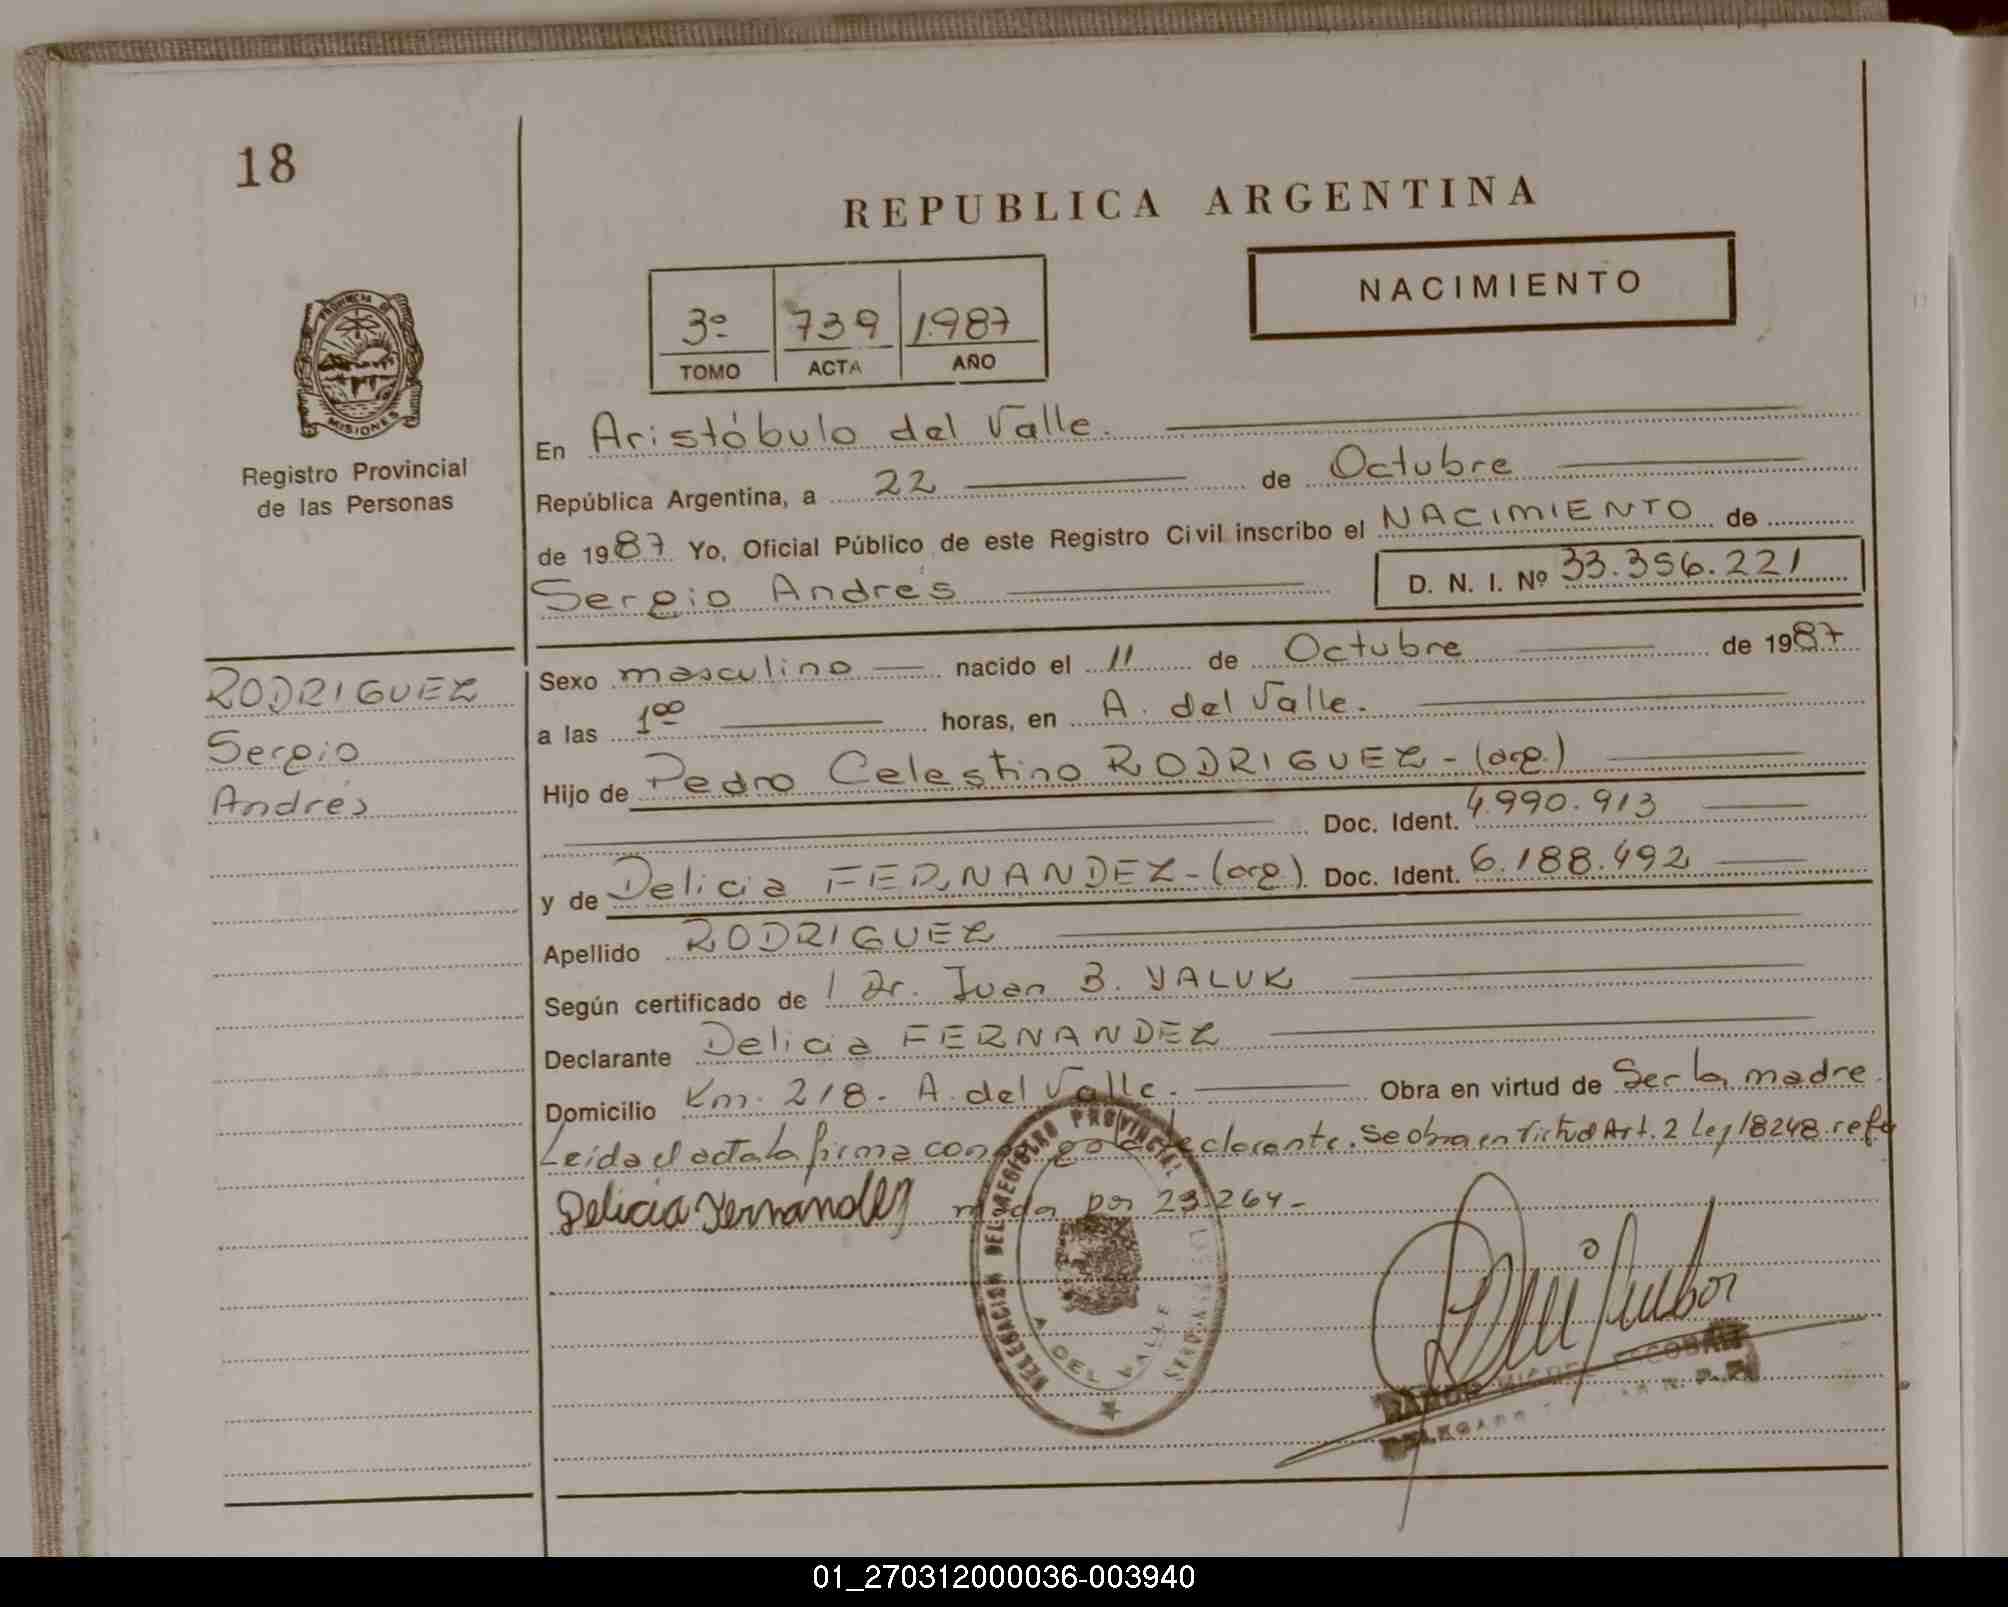 18
REPUBLICA ARGENTINA
NACIMIENTO
3º 739 1987
TOMO ACTA AÑO
PROVINCIA DE
MISIONES
Registro Provincial
de las Personas
En Aristóbulo del Valle.
República Argentina, a 22 de Octubre
de 1987 Yo, Oficial Público de este Registro Civil inscribo el NACIMIENTO de
Sergio Andrés D. N. I. Nº 33.356.221
RODRIGUEZ
Sergio
Andrés
Sexo masculino nacido el 11 de Octubre de 1987
a las 1⁰⁰ horas, en A. del Valle.
Hijo de Pedro Celestino RODRIGUEZ - (arg.)
Doc. Ident. 4.990.913
y de Delicia FERNANDEZ - (arg). Doc. Ident. 6.188.492
Apellido RODRIGUEZ
Según certificado de / Dr. Juan B. YALUK
Declarante Delicia FERNANDEZ
Domicilio Km. 218 - A. del Valle. Obra en virtud de Ser la madre.
Leida el acta la firma conmigo la declarante. Se obra en virtud Art. 2 Ley 18248 refor
mada por 23.264 -
Delicia Fernandez
DELEGACION DEL REGISTRO PROVINCIAL
A. DEL VALLE
RAMON MIGUEL ESCOBAR
DELEGADO
01_270312000036-003940